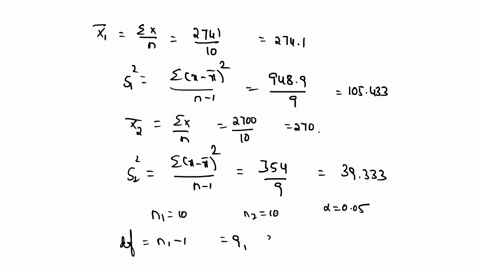 x̄₁ = Σx/n = 2741/10 = 274.1
S₁² = Σ(x-x̄)²/n-1 = 948.9/9 = 105.433
x̄₂ = Σx/n = 2700/10 = 270.
S₂² = Σ(x-x̄)²/n-1 = 354/9 = 39.333
n₁=10 n₂=10 α=0.05
df = n₁-1 = 9,